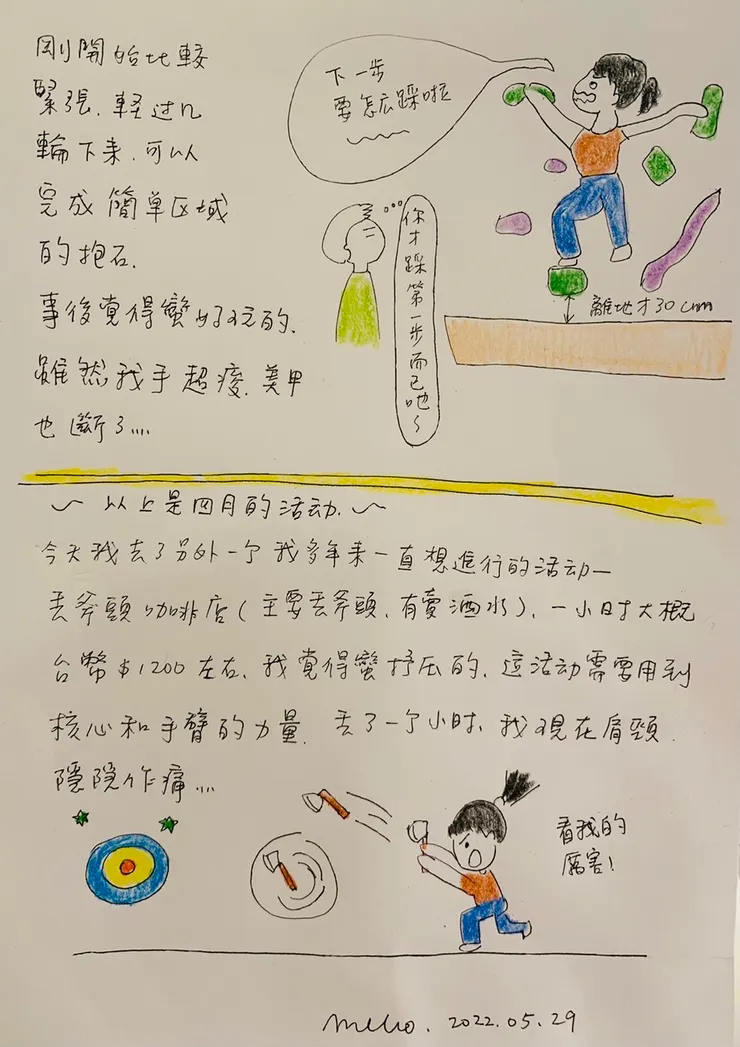 剛開始比較
緊張,輕过几
輪下来,可以
完成簡单区域
的抱石.
事後覚得蠻好玩的.
雖然我手超痠,美甲
也斷了....
下一步
要怎広踩啦
你才踩第一步而已吔~
離地才30cm
~ 以上是四月的活动. ~
今天我去了另外一个我多年来一直想進行的活动—
丟斧頭咖啡店(主要丟斧頭,有賣酒水),一小时大概
台幣$1200左右,我覚得蠻抒压的,這活动需要用到
核心和手臂的力量,丟了一个小时,我現在肩頸
隱隱作痛....
看我的
厲害!
2022.05.29